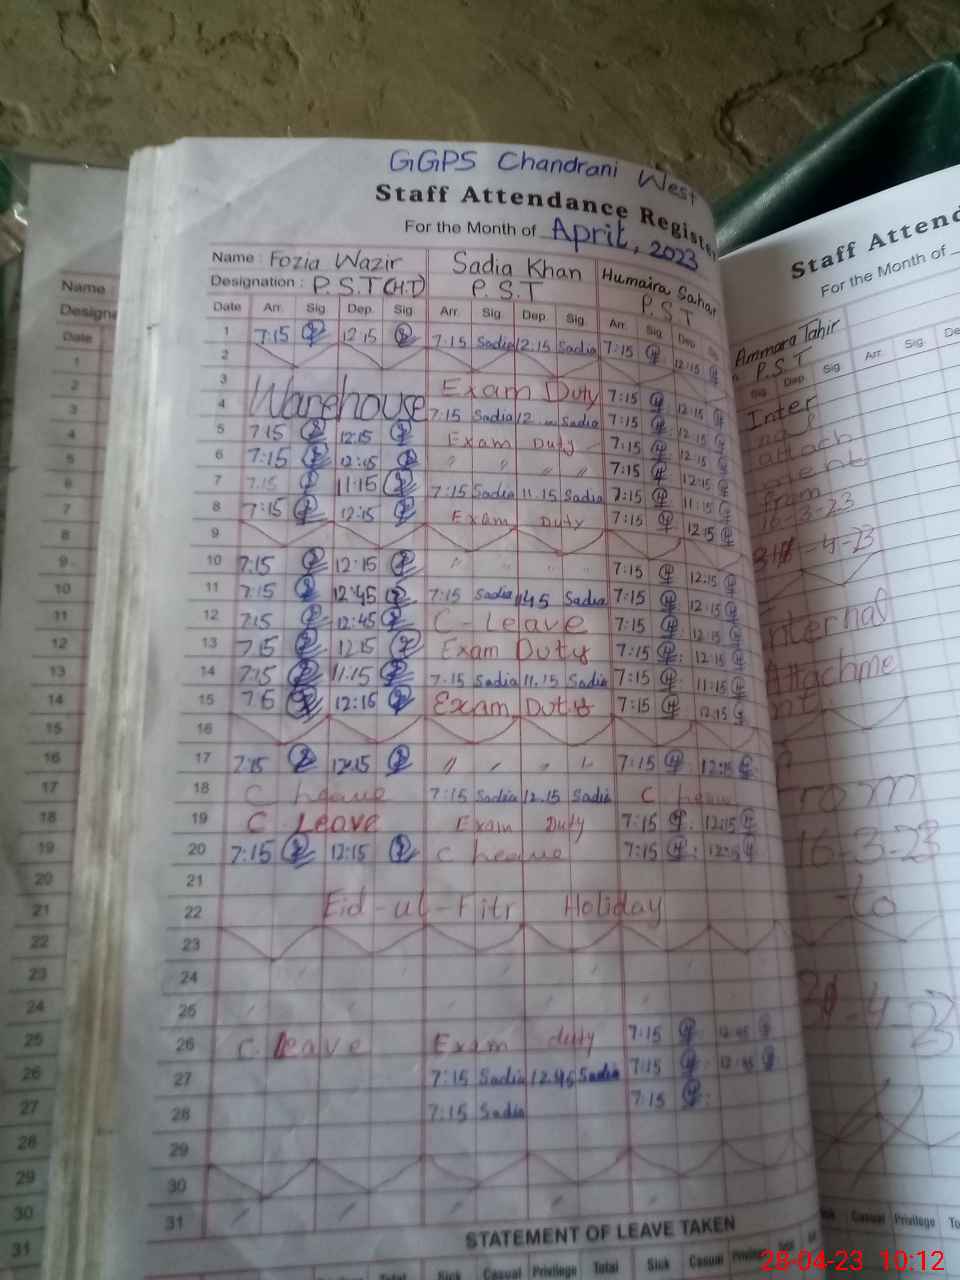 GGPS Chandrani West
Staff Attendance Registe
For the Month of April, 2023
Name : Fozia Wazir Sadia Khan Humaira Sahar
Designation : P.S.T (H.T) P.S.T P.S.T
Date Arr. Sig Dep. Sig Arr. Sig. Dep. Sig. Arr. Sig. Dep. Sig
1 7:15 12:15 7:15 Sadia 12.15 Sadia 7:15 12:15
2
3 Exam Duty 7:15 12:15
4 Warehouse 7:15 Sadia 12 Sadia 7:15 12:15
5 7:15 12:15 Exam Duty 7:15 12:15
6 7:15 12:15 〃 〃 〃 〃 7:15 12:15
7 7:15 11:15 7:15 Sadia 11.15 Sadia 7:15 11:15
8 7:15 12:15 Exam Duty 7:15 12:15
9
10 7:15 12:15 〃 〃 〃 〃 7:15 12:15
11 7:15 12:45 7:15 Sadia Sadia 7:15 12:15
12 7:15 12:45 C-Leave 7:15 12:15
13 7:15 12:15 Exam Duty 7:15 12:15
14 7:15 11:15 7.15 Sadia 11.15 Sadia 7:15 11:15
15 12:15 Exam Duty 7:15 12:15
16
17 7:15 12:15 〃 〃 〃 〃 7:15 12:15
18 C Leave 7:15 Sadia 12.15 Sadia C Leave
19 C Leave Exam Duty 7:15 12:15
20 7:15 12:15 C Leave 7:15 12:15
21
22 Eid-ul-Fitr Holiday
23
24
25
26 C. Leave Exam duty 7:15 12:45
27 7:15 Sadia 12.45 Sadia 7:15 12:45
28 7:15 Sadia 7:15
29
30
31
STATEMENT OF LEAVE TAKEN
Total Sick Casual Privilege Total Sick Casual Privilege
Name :
Designa
Date
1
2
3
4
5
6
7
8
9
10
11
12
13
14
15
16
17
18
19
20
21
22
23
24
25
26
27
28
29
30
31
Staff Attend
For the Month of
Ammara Tahir
P.S.T
Sig Dep. Sig Arr. Sig. De
Inter
attach
ment
from
16-3-23
-4-23
nternal
Attachme
rom
16-3-23
to
-4-23
Casual Privilege To
28-04-23 10:12